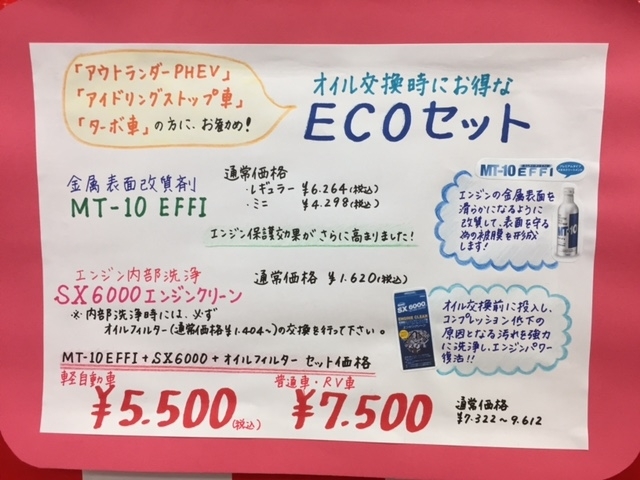 「アウトランダーPHEV」
「アイドリングストップ車」
「ターボ車」の方に、お勧め!
オイル交換時にお得な
ECOセット
金属表面改質剤
MT-10 EFFI
通常価格
・レギュラー ¥6.264(税込)
・ミニ ¥4.298(税込)
エンジン保護効果がさらに高まりました!
MT-10 EFFI
エンジンの金属表面を
滑らかになるように
改質して、表面を守る
為の被膜を形成
します!
エンジン内部洗浄
SX6000エンジンクリーン
通常価格 ¥1.620(税込)
※内部洗浄時には、必ず
オイルフィルター(通常価格¥1.404~)の交換を行って下さい。
SX 6000
オイル交換前に投入し、
コンプレッション低下の
原因となる汚れを強力
に洗浄し、エンジンパワー
復活!!
MT-10EFFI+SX6000+オイルフィルター セット価格
軽自動車
¥5.500(税込)
普通車・RV車
¥7.500
通常価格
¥7.322~9.612